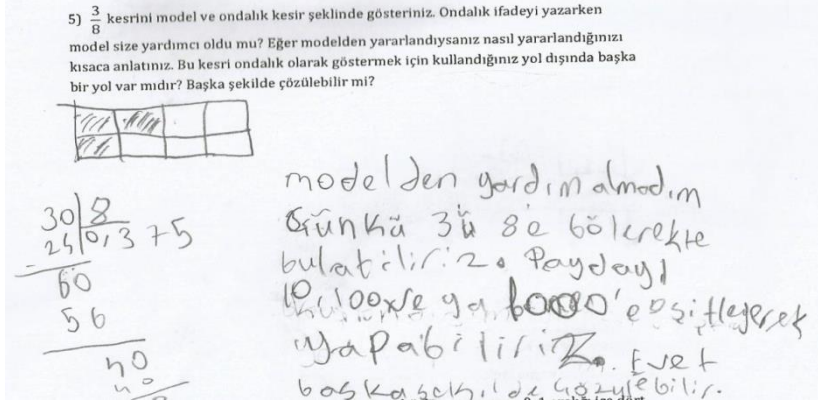 5) 3/8 kesrini model ve ondalık kesir şeklinde gösteriniz. Ondalık ifadeyi yazarken
model size yardımcı oldu mu? Eğer modelden yararlandıysanız nasıl yararlandığınızı
kısaca anlatınız. Bu kesri ondalık olarak göstermek için kullandığınız yol dışında başka
bir yol var mıdır? Başka şekilde çözülebilir mi?
30 8
24 0,375
60
56
40
40
modelden yardım almadım
Çünkü 3'ü 8'e bölerekte
bulabiliriz. Paydayı
10, 100 ve ya 1000'e eşitleyerek
yapabiliriz. Evet
başka şekilde çözülebilir.